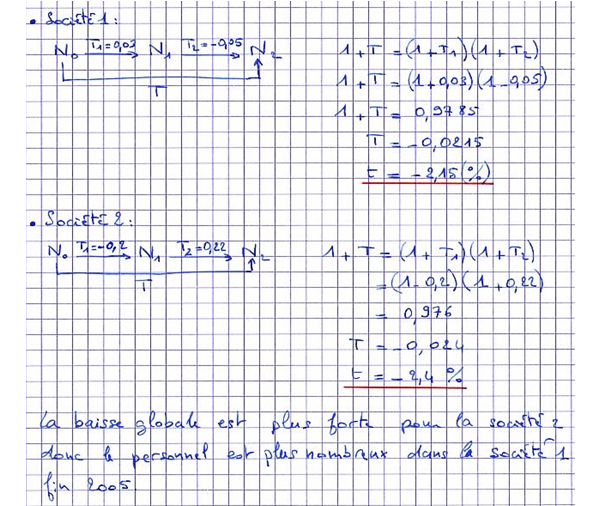 • Société 1 :
N₀ T₁=0,03 N₁ T₂=-0,05 N₂
T
1 + T = (1+T₁)(1+T₂)
1 + T = (1+0,03)(1-0,05)
1 + T = 0,9785
T = -0,0215
t = -2,15(%)
• Société 2 :
N₀ T₁=-0,2 N₁ T₂=0,22 N₂
T
1 + T = (1+T₁)(1+T₂)
= (1-0,2)(1+0,22)
= 0,976
T = -0,024
t = -2,4 %
La baisse globale est plus forte pour la société 2
donc le personnel est plus nombreux dans la société 1
fin 2005.